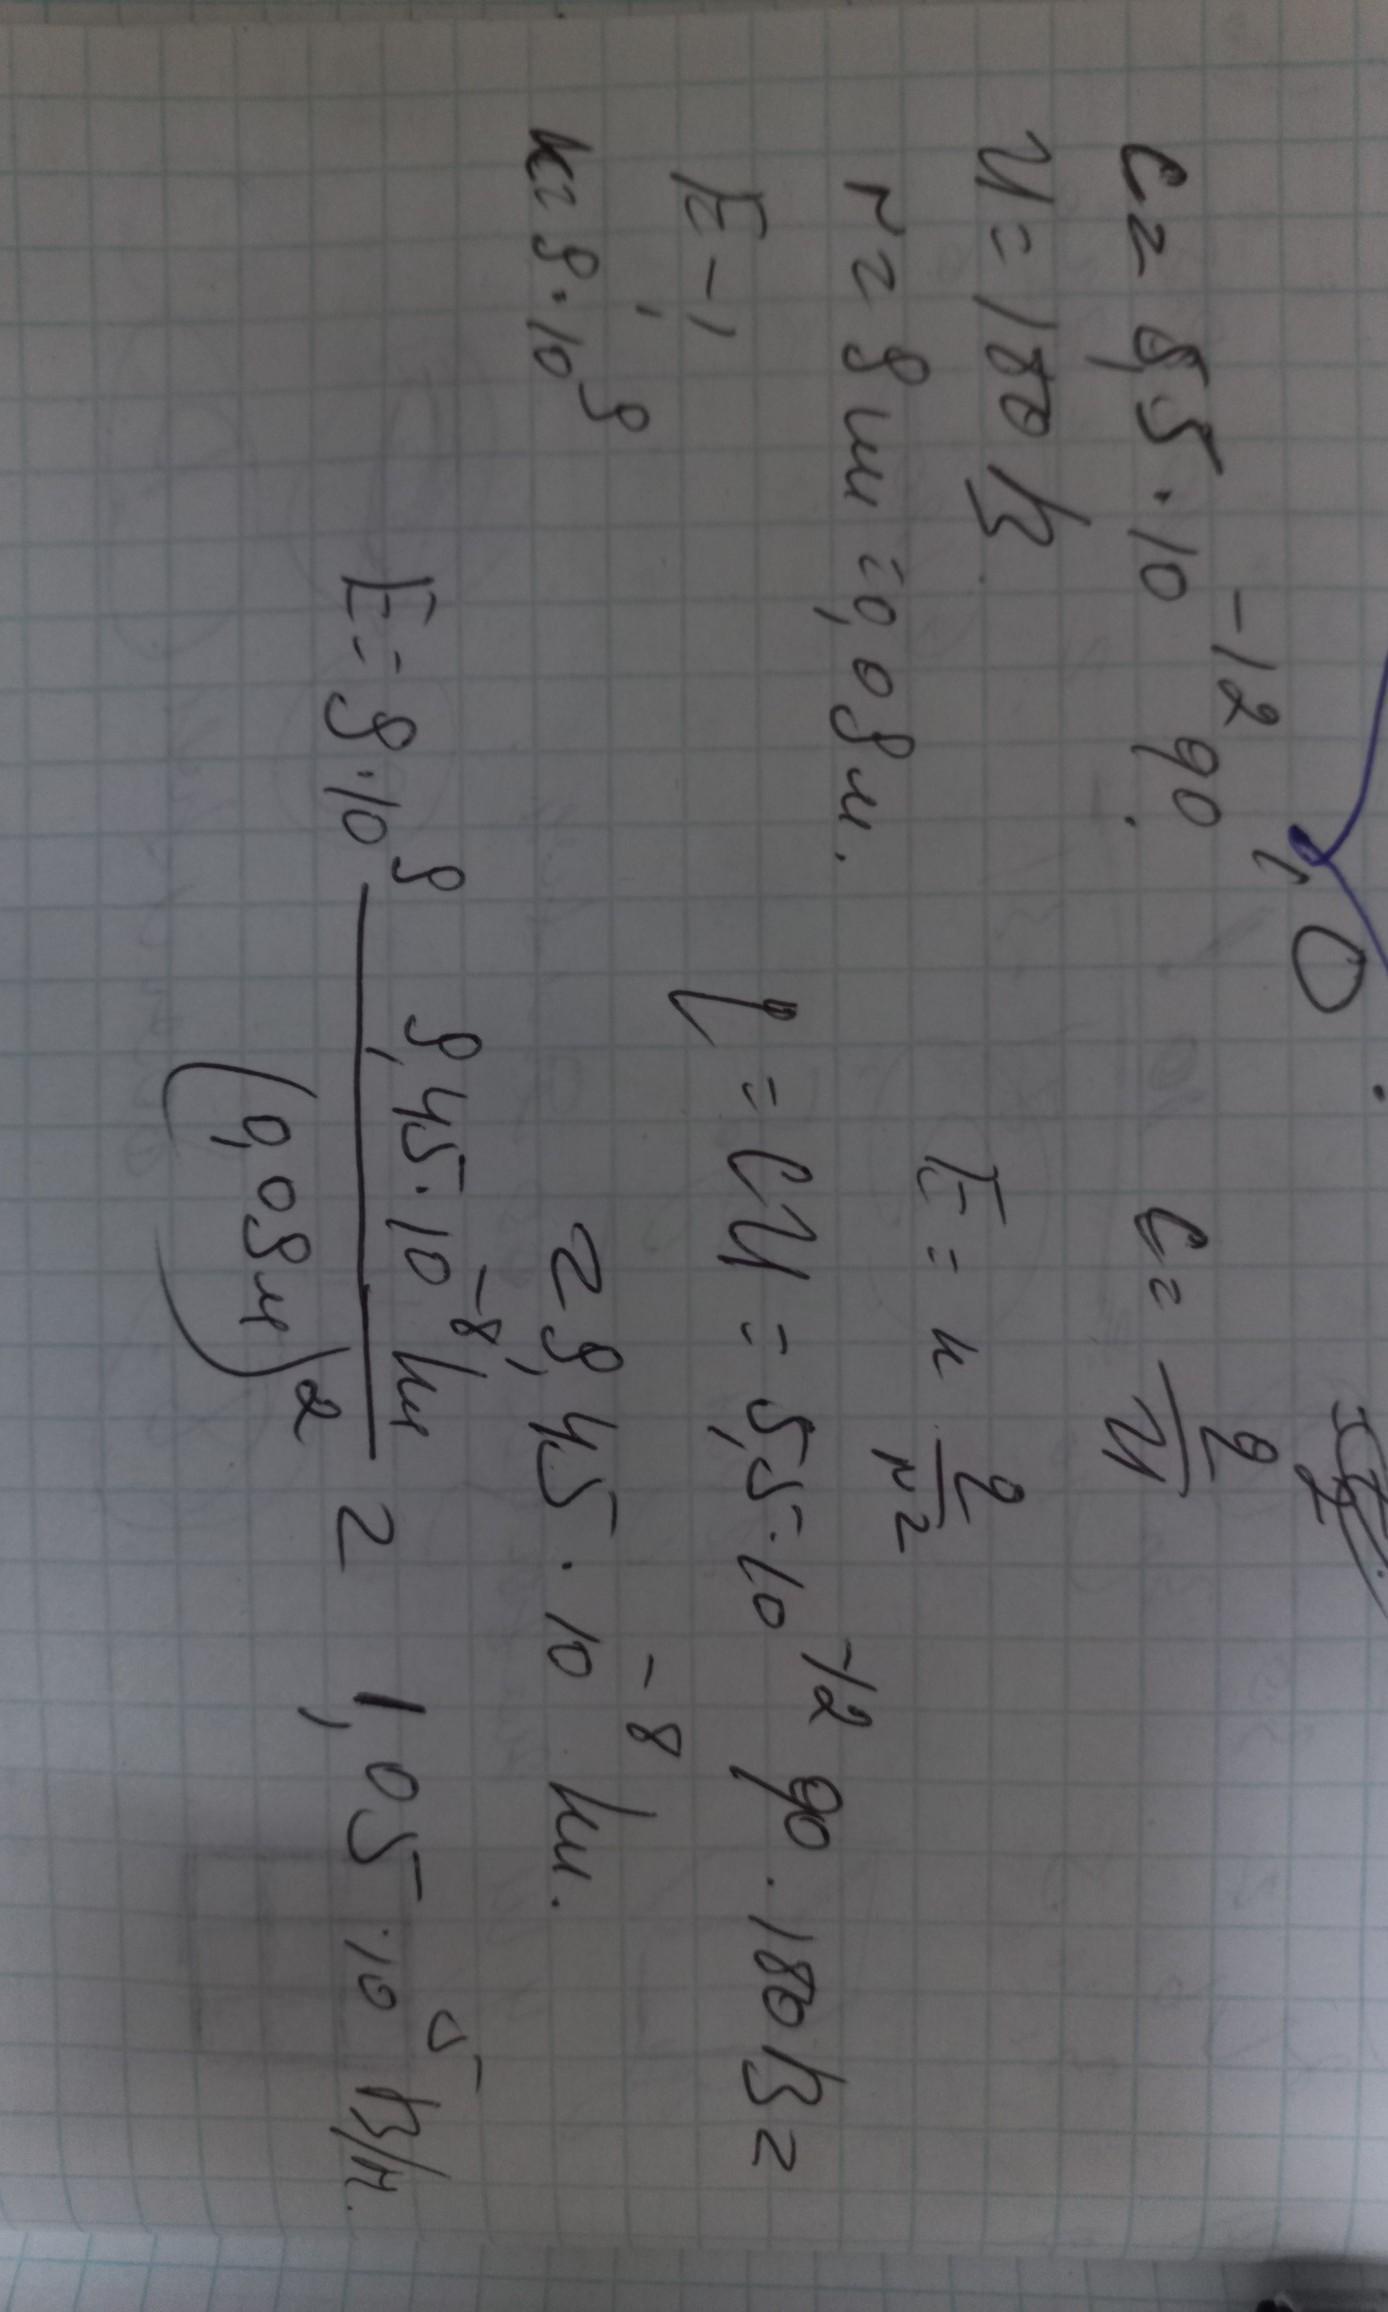 C = 5,5·10⁻¹² ф.
U = 180 В
r = 9 см = 0,09 м.
E - ?
k = 9·10⁹
C = q/U
E = k q/r²
q = CU = 5,5·10⁻¹² ф · 180 В =
= 9,45·10⁻⁸ Кл.
E = 9·10⁹ 9,45·10⁻⁸ Кл/(0,09м)² = 1,05·10⁵ В/м.